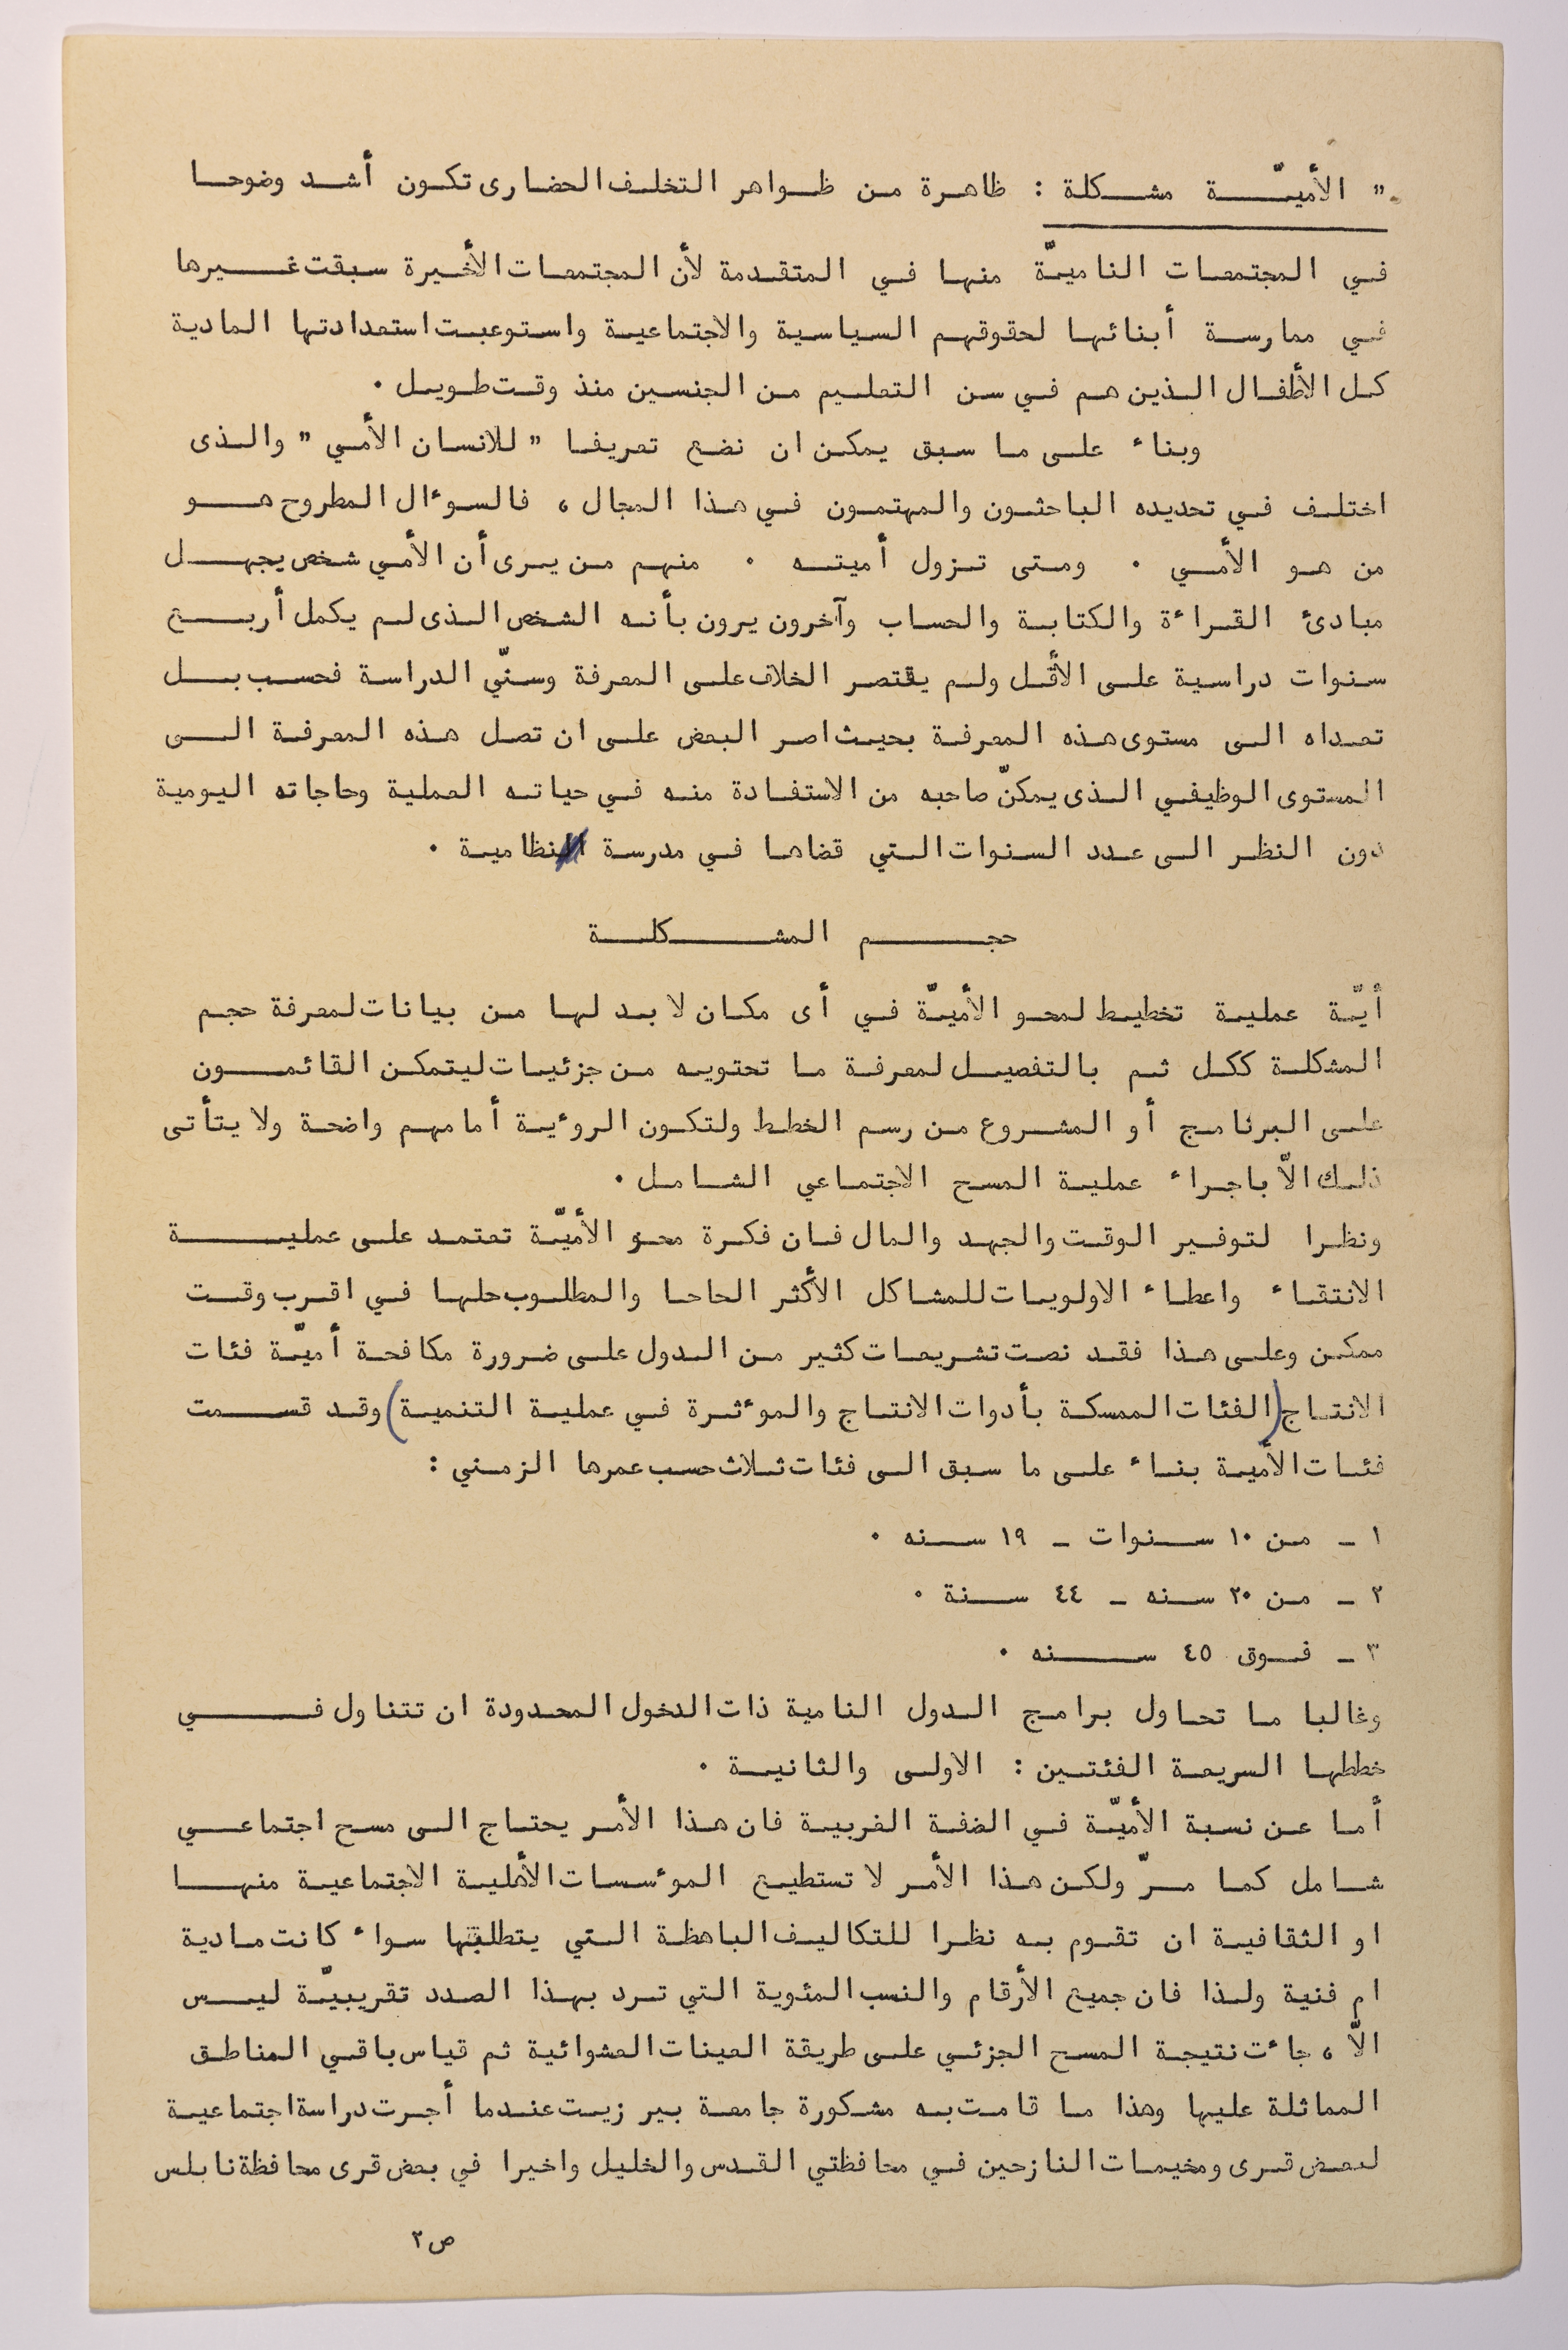 " الأميّة مشكلة : ظاهرة من ظواهر التخلف الحضارى تكون أشد وضوحا
في المجتمعات الناميّة منها في المتقدمة لأن المجتمعات الأخيرة سبقت غيرها
في ممارسة أبنائها لحقوقهم السياسية والاجتماعية واستوعبت استعدادتها المادية
كل الأطفال الذين هم في سن التعليم من الجنسين منذ وقت طويل .
وبناء على ما سبق يمكن ان نضع تعريفا " للانسان الأمي " والذى
اختلف في تحديده الباحثون والمهتمون في هذا المجال ، فالسوءال المطروح هو
من هو الأمي . ومتى تزول أميته . منهم من يرى أن الأمي شخص يجهل
مبادئ القراءة والكتابة والحساب وآخرون يرون بأنه الشخص الذى لم يكمل أربع
سنوات دراسية على الأقل ولم يقتصر الخلاف على المعرفة وسنّي الدراسة فحسب بل
تعداه الى مستوى هذه المعرفة بحيث اصر البعض على ان تصل هذه المعرفة الى
المستوى الوظيفي الذى يمكنّ صاحبه من الاستفادة منه في حياته العملية وحاجاته اليومية
دون النظر الى عدد السنوات التي قضاها في مدرسة نظامية .
حجم المشكلة
أيّة عملية تخطيط لمحو الأميّة في أى مكان لا بد لها من بيانات لمعرفة حجم
المشكلة ككل ثم بالتفصيل لمعرفة ما تحتويه من جزئيات ليتمكن القائمون
على البرنامج أو المشروع من رسم الخطط ولتكون الروءية أمامهم واضحة ولا يتأتى
ذلك الاّ باجراء عملية المسح الاجتماعي الشامل .
ونظرا لتوفير الوقت والجهد والمال فان فكرة محو الأميّة تعتمد على عملية
الانتقاء واعطاء الاولويات للمشاكل الأكثر الحاحا والمطلوب حلها في اقرب وقت
ممكن وعلى هذا فقد نصت تشريعات كثير من الدول على ضرورة مكافحة أميّة فئات
الانتاج (الفئات الممسكة بأدوات الانتاج والموءثرة في عملية التنمية) وقد قسمت
فئات الأمية بناء على ما سبق الى فئات ثلاث حسب عمرها الزمني :
١ - من ١٠ سنوات - ١٩ سنه .
٢ - من ٢٠ سنه - ٤٤ سنة .
٣ - فوق ٤٥ سنه .
وغالبا ما تحاول برامج الدول النامية ذات الدخول المحدودة ان تتناول في
خططها السريعة الفئتين : الاولى والثانية .
أما عن نسبة الأميّة في الضفة الغربية فان هذا الأمر يحتاج الى مسح اجتماعي
شامل كما مرّ ولكن هذا الأمر لا تستطيع الموءسسات الأهلية الاجتماعية منها
او الثقافية ان تقوم به نظرا للتكاليف الباهظة التي يتطلبها سواء كانت مادية
ام فنية ولذا فان جميع الأرقام والنسب المئوية التي ترد بهذا الصدد تقريبيّة ليس
الاّ ، جاءت نتيجة المسح الجزئي على طريقة العينات العشوائية ثم قياس باقي المناطق
المماثلة عليها وهذا ما قامت به مشكورة جامعة بير زيت عندما أجرت دراسة اجتماعية
لبعض قرى ومخيمات النازحين في محافظتي القدس والخليل واخيرا في بعض قرى محافظة نابلس
ص ٢